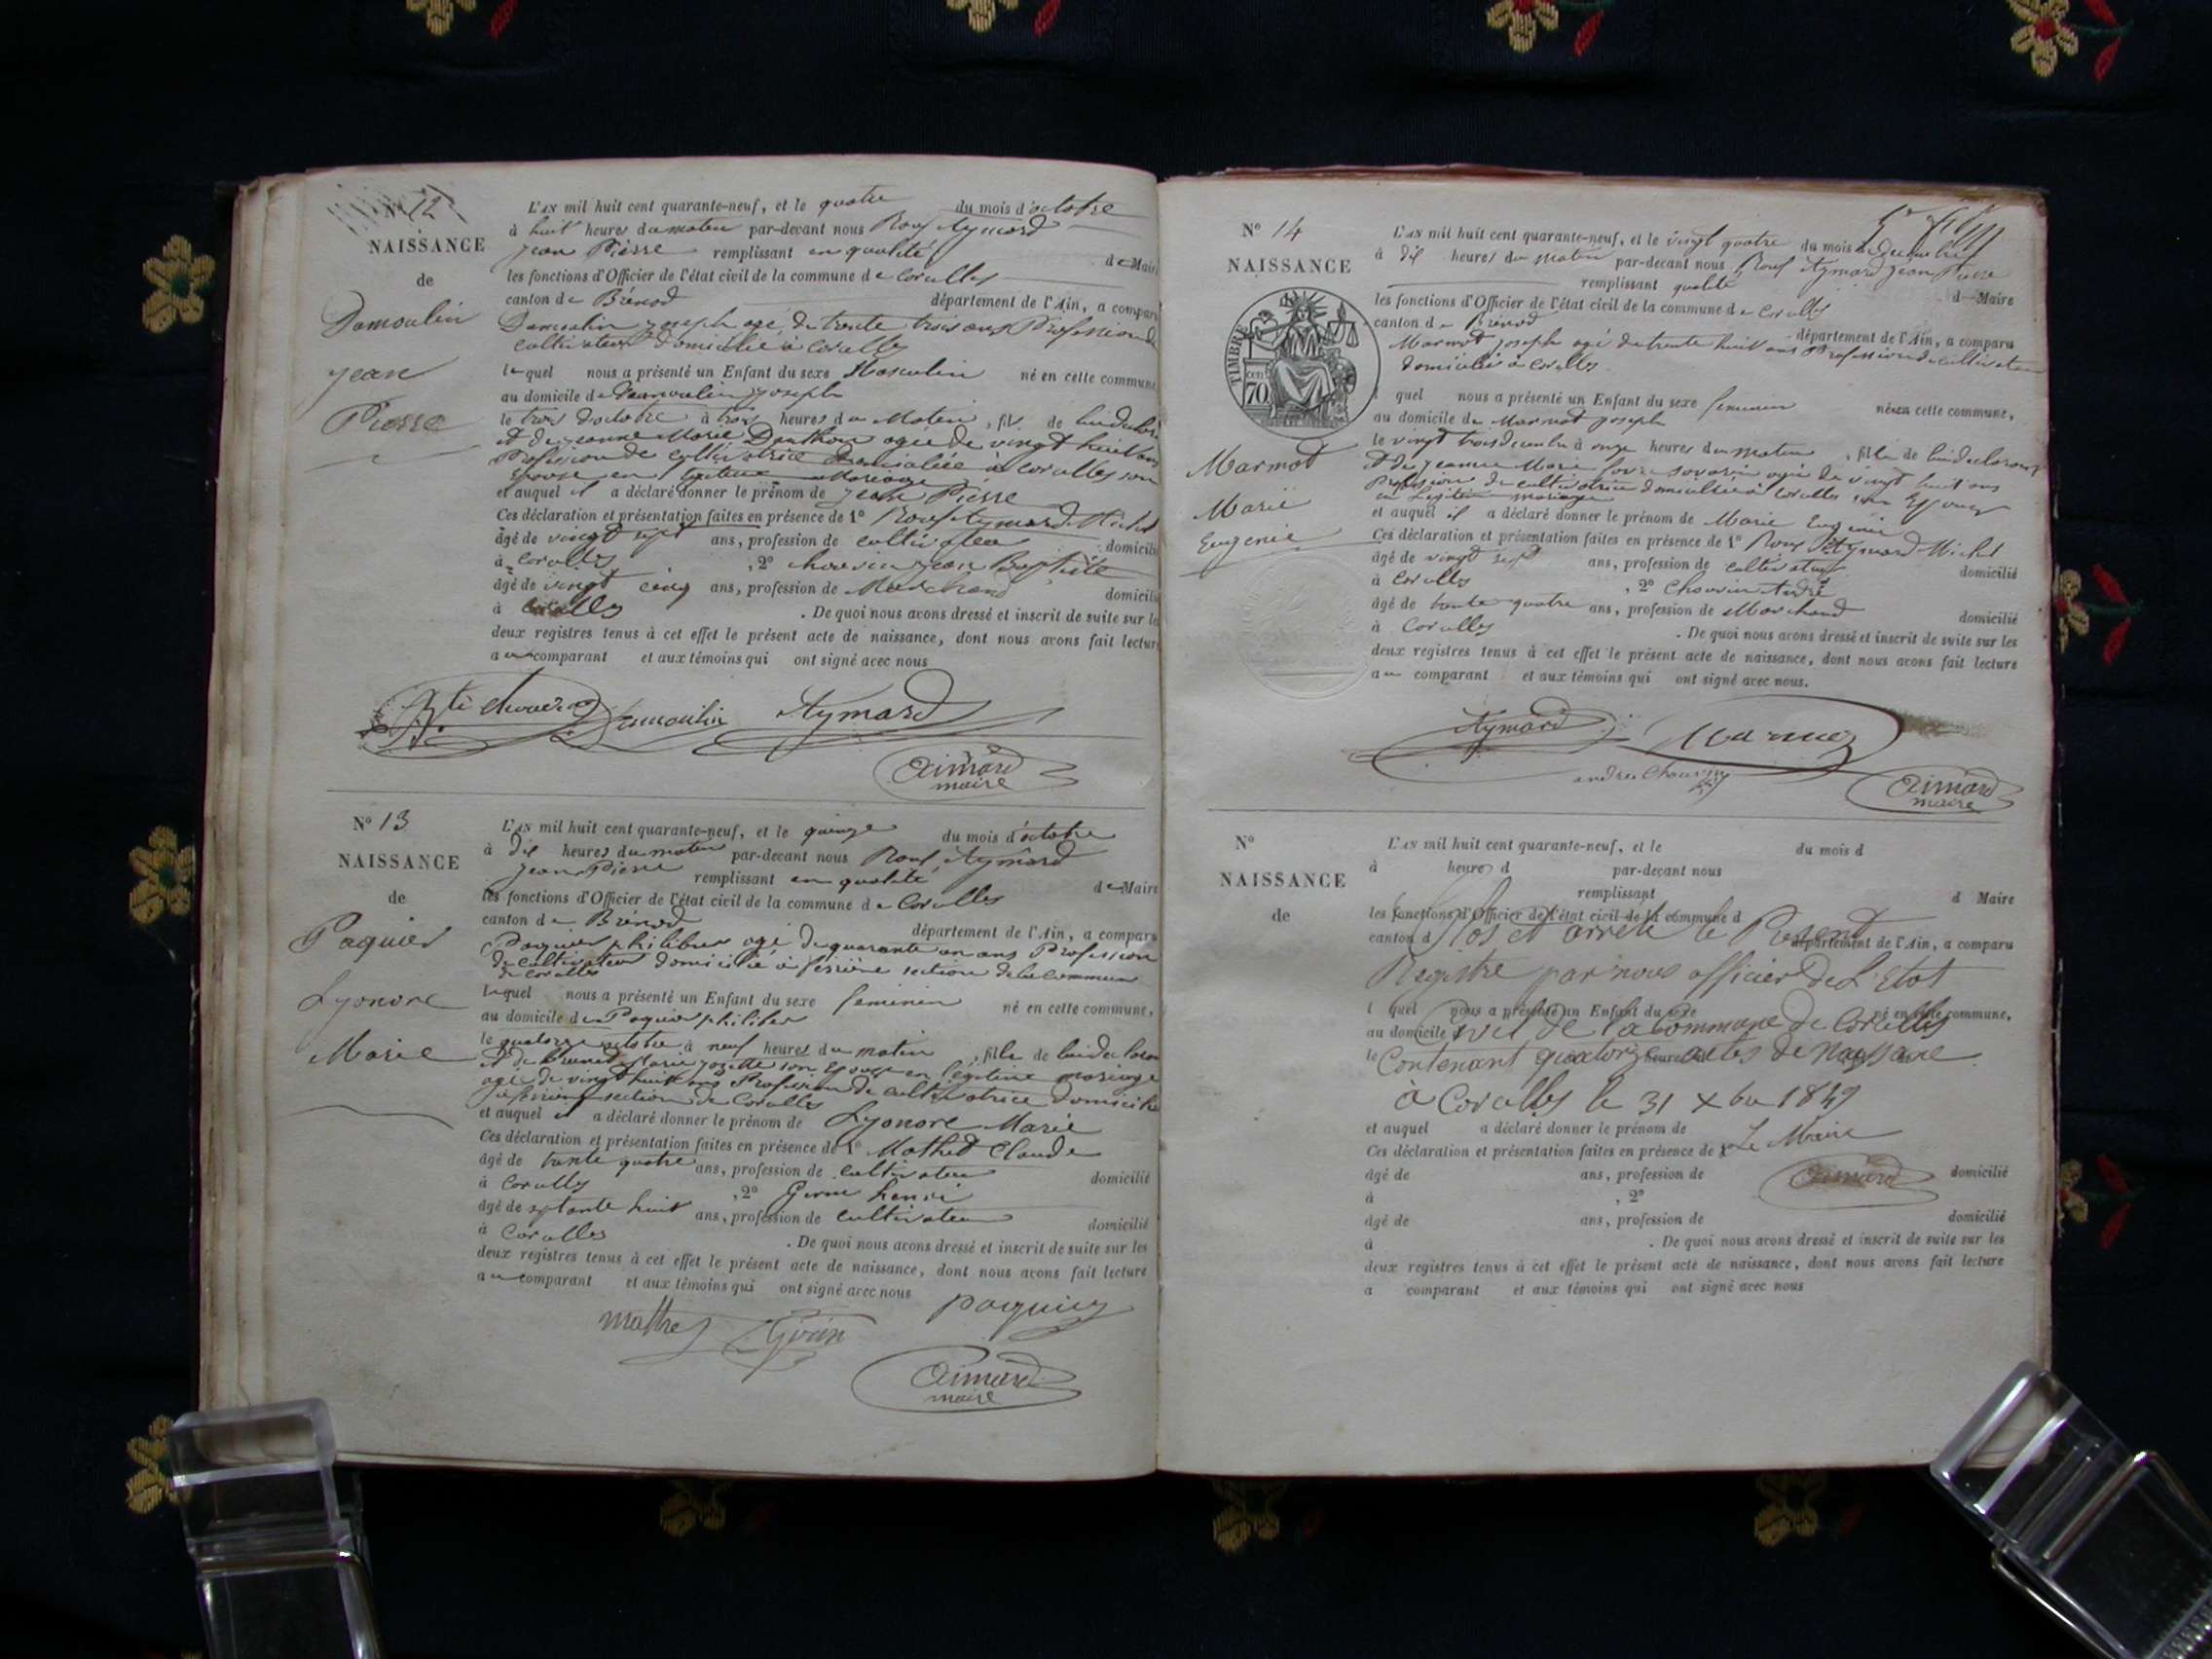 N° 12
NAISSANCE
de
Damoulin
Jean
Pierre
L'AN mil huit cent quarante-neuf, et le quatre du mois d'octobre
à huit heures du matin par-devant nous Roux Aymard
Jean Pierre remplissant en qualité de Maire
les fonctions d'Officier de l'état civil de la commune de Corcelles
canton de Brénod département de l'Ain, a comparu
Damoulin joseph agé de trente trois ans Profession de
cultivateur domicilié à Corcelles
lequel nous a présenté un Enfant du sexe Masculin né en cette commune,
au domicile de Damoulin joseph
le trois d'octobre à trois heures du Matin, fils de lui déclarant
et de jeanne Marie Danthon agée de vingt huit ans
Profession de cultivatrice domiciliée à Corcelles son
épouse en légitime Mariage
et auquel il a déclaré donner le prénom de Jean Pierre
Ces déclaration et présentation faites en présence de 1° Roux Aymard Michel
âgé de vingt sept ans, profession de cultivateur domicilié
à Corcelles, 2° chouvin jean Baptiste
âgé de vingt cinq ans, profession de Marchand domicilié
à Corcelles. De quoi nous avons dressé et inscrit de suite sur les
deux registres tenus à cet effet le présent acte de naissance, dont nous avons fait lecture
au comparant et aux témoins qui ont signé avec nous
Damoulin Aymard
Aimard
maire
N° 13
NAISSANCE
de
Paquier
Lyonore
Marie
L'AN mil huit cent quarante-neuf, et le quinze du mois d'octobre
à dix heures du matin par-devant nous Roux Aymard
Jean Pierre remplissant en qualité de Maire
les fonctions d'Officier de l'état civil de la commune de Corcelles
canton de Brénod département de l'Ain, a comparu
Paquier philiber agé de quarante un ans Profession
de cultivateur domicilié à section de la commune
de Corcelles
lequel nous a présenté un Enfant du sexe feminin né en cette commune,
au domicile de Paquier philiber
le quatorze octobre à neuf heures du matin, fille de lui déclarant
et de Marie jozette son Epouse en légitime mariage
agé de vingt huit ans Profession de cultivatrice domicilié
section de Corcelles
et auquel il a déclaré donner le prénom de Lyonore Marie
Ces déclaration et présentation faites en présence de 1° Mathet Claude
âgé de trente quatre ans, profession de cultivateur domicilié
à Corcelles, 2° henri
âgé de septante huit ans, profession de cultivateur domicilié
à Corcelles. De quoi nous avons dressé et inscrit de suite sur les
deux registres tenus à cet effet le présent acte de naissance, dont nous avons fait lecture
au comparant et aux témoins qui ont signé avec nous
paquier
Aimard
maire
N° 14
NAISSANCE
TIMBRE
70
Marmot
Marie
Eugenie
L'AN mil huit cent quarante-neuf, et le vingt quatre du mois de décembre
à dix heures du matin par-devant nous Roux Aymard jean Pierre
remplissant qualité d Maire
les fonctions d'Officier de l'état civil de la commune de Corcelles
canton de Brénod département de l'Ain, a comparu
Marmot joseph agé de trente huit ans Profession de cultivateur
domicilié à Corcelles
quel nous a présenté un Enfant du sexe feminin né en cette commune,
au domicile de Marmot joseph
le vingt trois décembre à onze heures du matin, fille de lui déclarant
et de jeanne Marie savarin agée de vingt huit ans
Profession de cultivatrice domiciliée à Corcelles son Epouse
en Légitime mariage
et auquel il a déclaré donner le prénom de Marie Eugénie
Ces déclaration et présentation faites en présence de 1° Roux Aymard Michel
âgé de vingt sept ans, profession de cultivateur domicilié
à Corcelles, 2° Chouvin André
âgé de trente quatre ans, profession de Marchand domicilié
à Corcelles. De quoi nous avons dressé et inscrit de suite sur les
deux registres tenus à cet effet le présent acte de naissance, dont nous avons fait lecture
au comparant et aux témoins qui ont signé avec nous.
Aymard
Aimard
maire
N°
NAISSANCE
de
L'AN mil huit cent quarante-neuf, et le du mois d
à heures d par-devant nous
remplissant d Maire
les fonctions d'Officier de l'état civil de la commune d
canton d département de l'Ain, a comparu
Clos et arrété le Présent
Registre par nous officier de L'Etat
l quel nous a présenté un Enfant du sexe né en cette commune,
au domicile
Civil de la Commune de Corcelles
le heures
Contenant quatorze actes de naissance
à Corcelles le 31 Xbre 1849
et auquel a déclaré donner le prénom de
Le Maire
Ces déclaration et présentation faites en présence de
âgé de ans, profession de domicilié
Aimard
à , 2°
âgé de ans, profession de domicilié
à . De quoi nous avons dressé et inscrit de suite sur les
deux registres tenus à cet effet le présent acte de naissance, dont nous avons fait lecture
a comparant et aux témoins qui ont signé avec nous